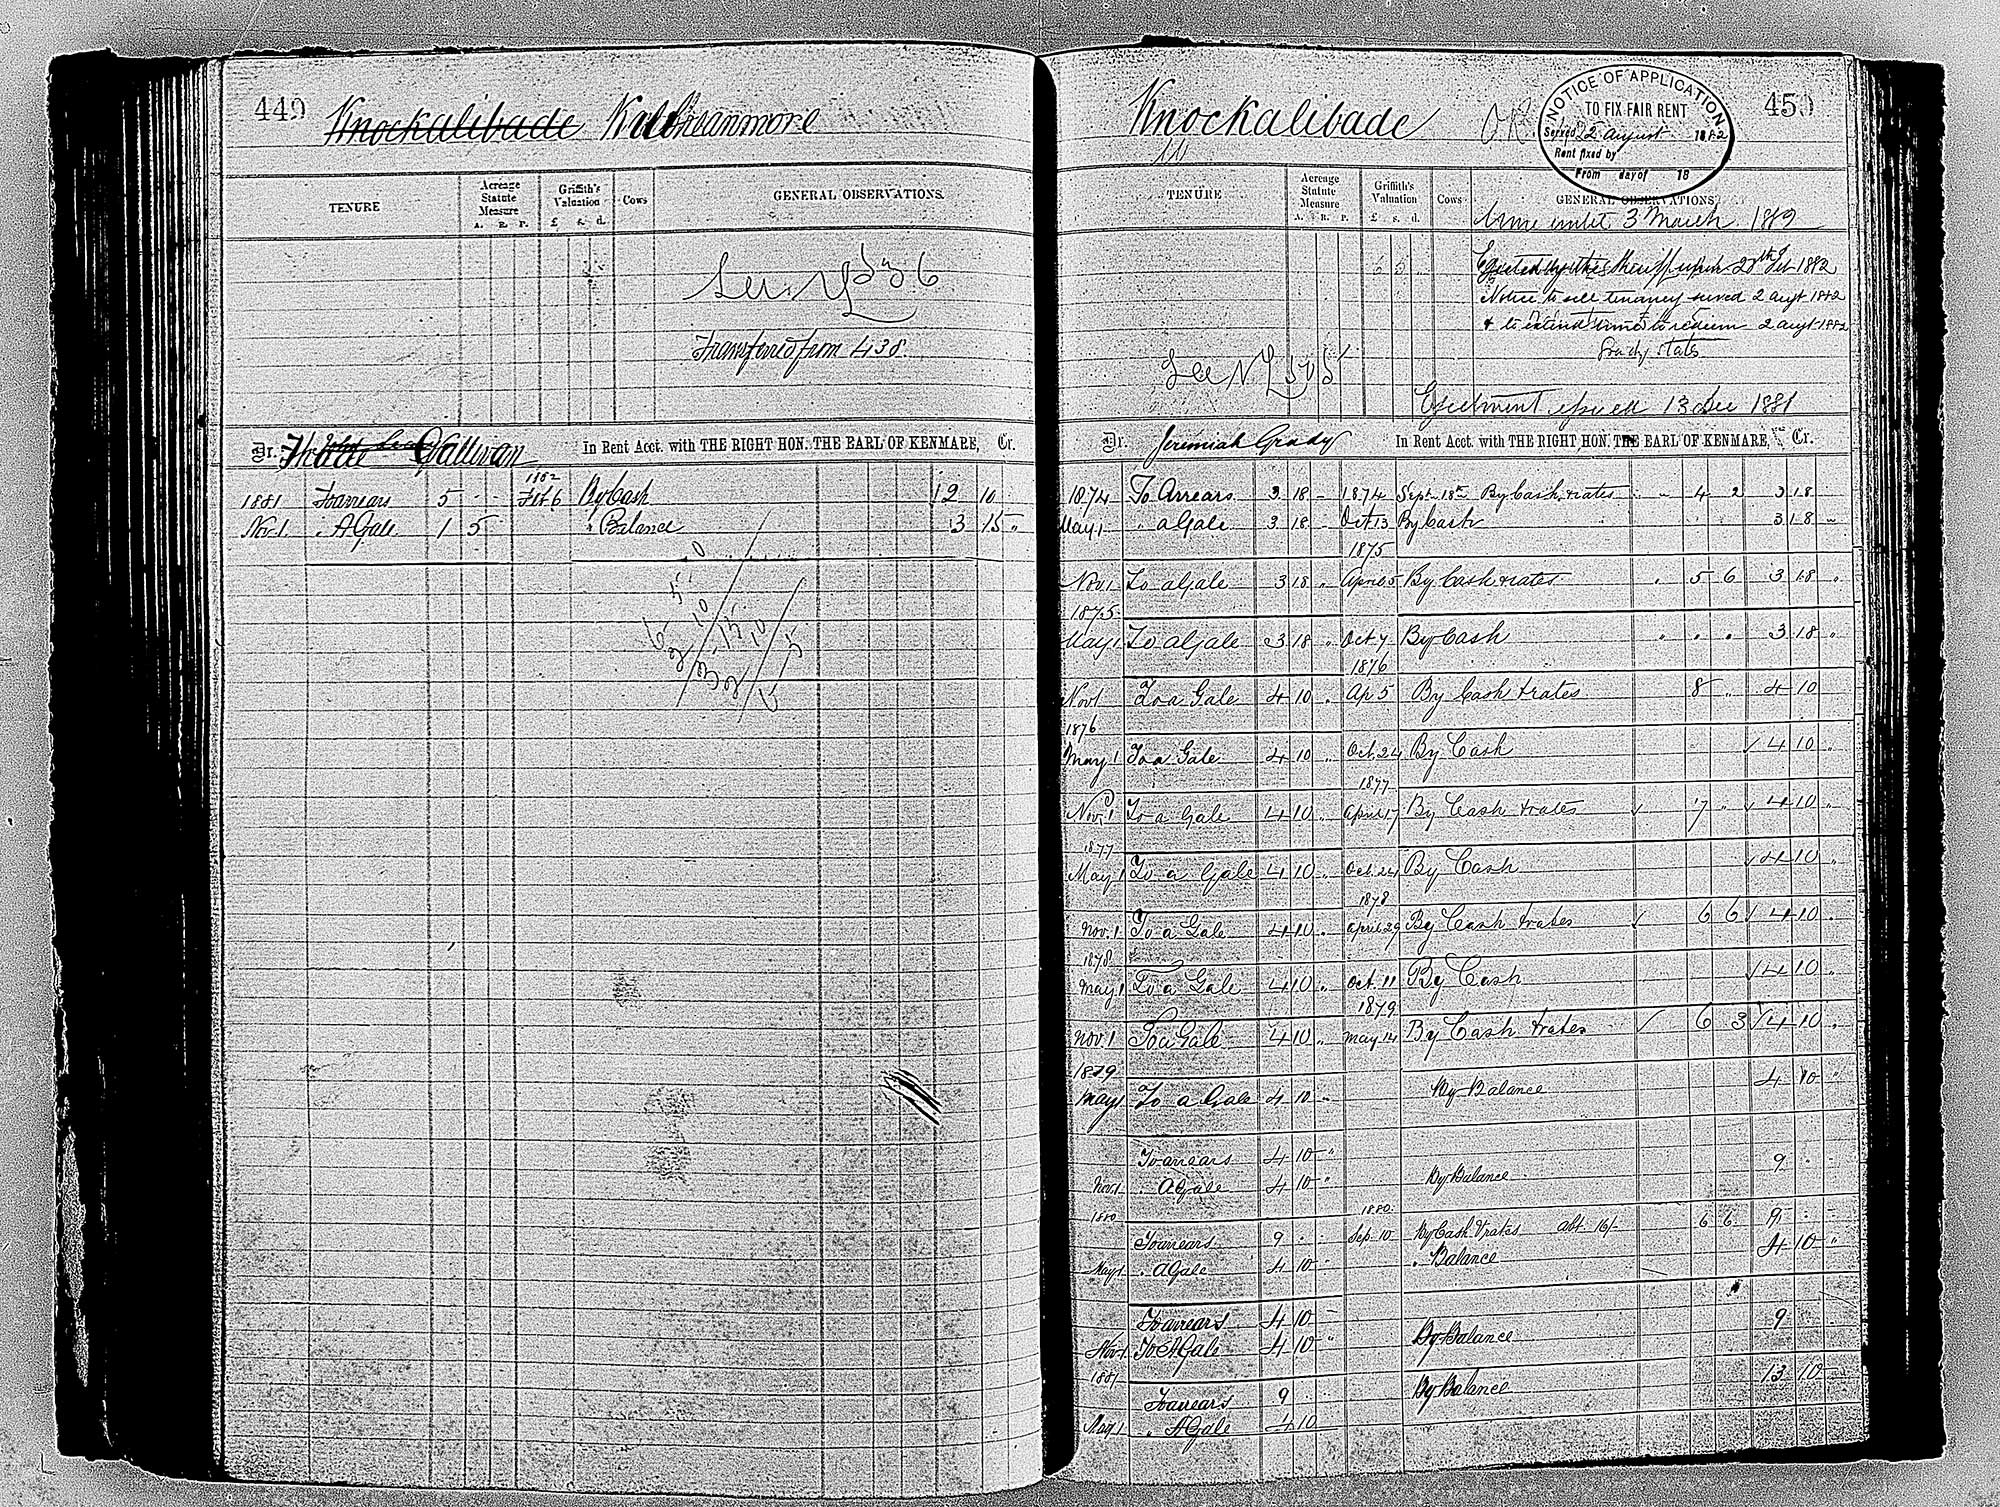 449
Knockalibade
TENURE
Acreage Statute Measure
A. R. P.
Griffith's Valuation
£ s. d.
Cows
GENERAL OBSERVATIONS.
See
Transferred from 438
Dr. Sullivan In Rent Acct. with THE RIGHT HON. THE EARL OF KENMARE, Cr.
1882
1881 To arrears 5 - - Feb 6 By Cash 2 10
Nov 1. " A Gale. 1 5 " Balance 3 15 "
5 - 0
6
2 10
3 - 15
2 10
5
Knockalibade
450
NOTICE OF APPLICATION
TO FIX FAIR RENT
Served 22 August 1882
Rent fixed by
From day of 18
TENURE
Acreage Statute Measure
A. R. P.
Griffith's Valuation
£ s. d.
Cows
GENERAL OBSERVATIONS.
3 March 1889
Ejected by the Sheriff upon 20th Feb 1882
Notice to sell tenancy served 2 augt 1882
& to extend time to redeem 2 augt 1882
Grady states
See N L
Ejectment issued 13 Dec 1881
Dr. Jeremiah Grady In Rent Acct. with THE RIGHT HON. THE EARL OF KENMARE, Cr.
1874 To Arrears 3 18 - 1874 Sept. 18th By Cash & rates " 4 2 3 18
May 1 " a Gale 3 18 - Oct 13 By Cash 3 18 "
1875
Nov. 1 To a Gale 3 18 " April 5 By Cash & rates " 5 6 3 18 "
1875
May 1 To a Gale 3 18 " Oct 7 By Cash " " " 3 18 "
1876
Nov 1 To a Gale 4 10 " Ap 5 By Cash & rates 8 " 4 10
1876
May 1 To a Gale 4 10 " Oct. 24 By Cash 4 10 "
1877
Nov. 1 To a Gale 4 10 " April 17 By Cash & rates 7 " 4 10 "
1877
May 1 To a Gale 4 10 " Oct. 24 By Cash 4 10 "
1878
Nov. 1 To a Gale 4 10 " April 29 By Cash & rates 6 6 4 10 "
1878
May 1 To a Gale 4 10 " Oct. 11 By Cash 4 10 "
1879
Nov. 1 To a Gale 4 10 " May 14 By Cash & rates 6 3 4 10 "
1879
May 1 To a Gale 4 10 " By Balance 4 10 "
To arrears 4 10 "
Nov 1 " A Gale 4 10 " By Balance 9 - -
1880 1880
To arrears 9 - - Sep 10 By Cash & rates abt. 16/- 6 6 9 - -
May 1 " A Gale 4 10 " Balance 4 10 "
To arrears 4 10 -
Nov 1 To A Gale 4 10 " By Balance 9
1881
To arrears 9 - - By Balance 13 10
May 1 " A Gale 4 10